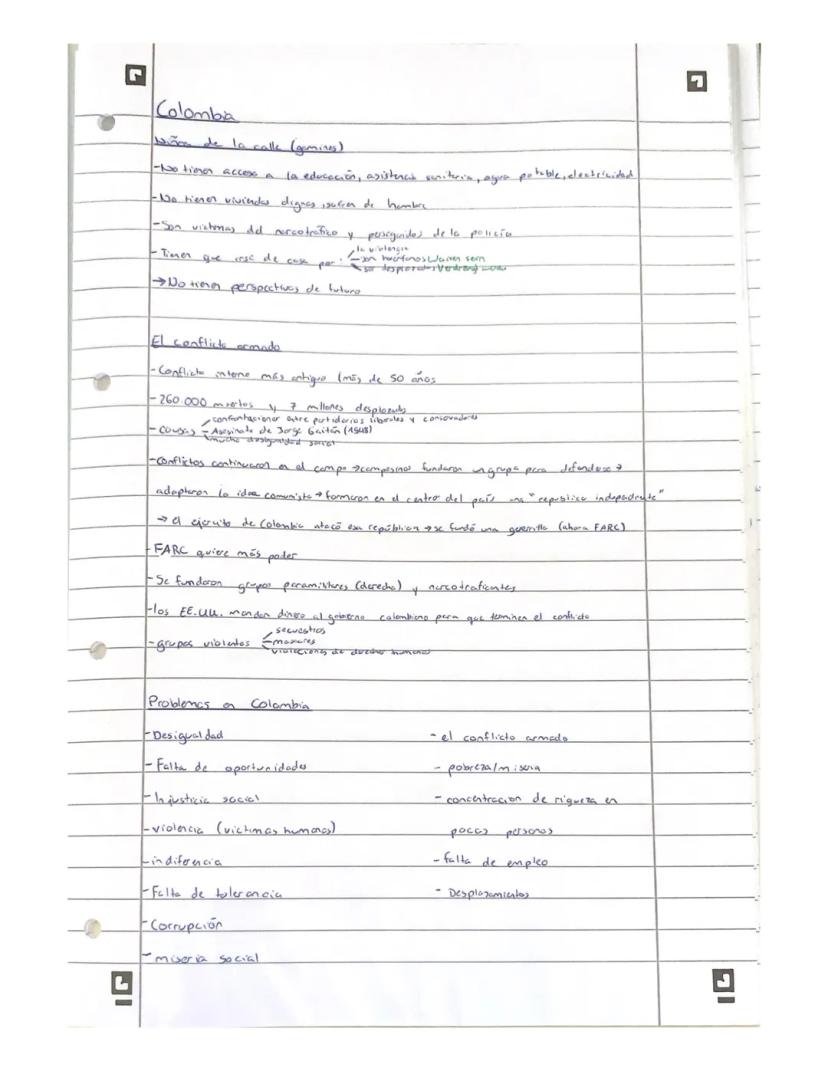 Colombia
Niños de la calle (gamines)
-No tienen acceso a la educación, asistencia sanitaria, agua potable, electricidad
-No tienen viviendas dignas, sufren de hambre
-Son victimas del narcotráfico y perseguidos de la policía
-Tienen que irse de casa por:
la violencia
son huérfanos
ser desplazados
→No tienen perspectivas de futuro
El conflicto armado
-Conflicto interno más antiguo (más de 50 años
-260.000 muertos y 7 millones desplazados
-causas
confrontaciones entre partidarios liberales y conservadores
Asesinato de Jorge Gaitán (1948)
mucha desigualdad social
-Conflictos continuaron en el campo →campesinos fundaron un grupo para defenderse →
adoptaron la idea comunista → formaron en el centro del país una "republica independiente"
→ el ejercito de Colombia atacó esa república → se fundó una guerrilla (ahora FARC)
-FARC quiere más poder
-Se fundaron grupos paramilitares (derecha) y narcotraficantes
-los EE.UU. mandan dinero al gobierno colombiano para que terminen el conflicto
-grupos violentos
secuestros
masacres
violaciones de derechos humanos
Problemas en Colombia
-Desigualdad
-Falta de oportunidades
-Injusticia social
-violencia (víctimas humanas)
-indiferencia
-Falta de tolerancia
-Corrupción
-miseria social
-el conflicto armado
-pobreza/miseria
-concentracion de riqueza en
pocas personas
-falta de empleo
-Desplazamientos